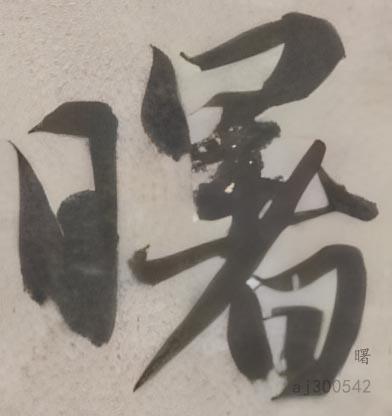 曙
曙
aj300542